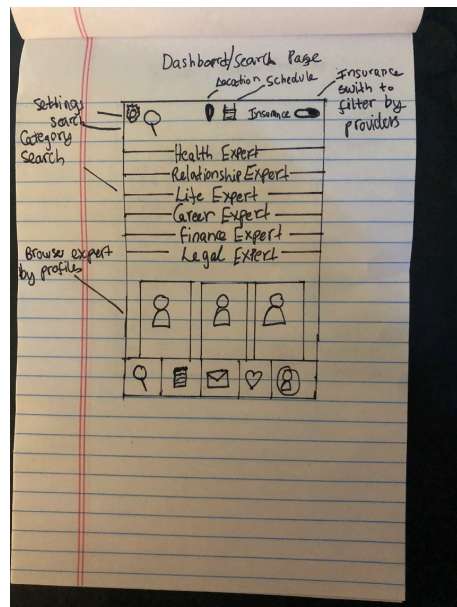 Dashboard/Search Page
Location
Schedule
Insurance
swith to
filter by
providers
Settings
Search
Category
Search
Insurance
Health Expert
Relationship Expert
Life Expert
Career Expert
Finance Expert
Legal Extert
Browse expert
by profiles